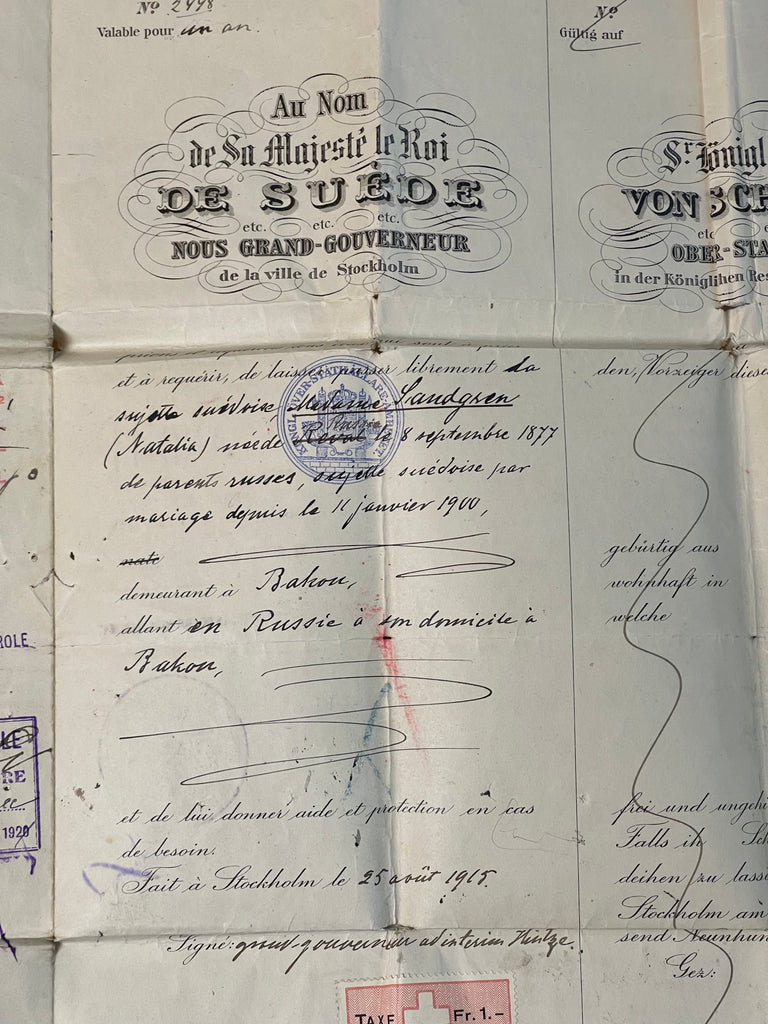 Nº 2498
Valable pour un an.
Au Nom
de Sa Majesté le Roi
DE SUÈDE
etc. etc. etc.
NOUS GRAND-GOUVERNEUR
de la ville de Stockholm
et à requérir, de laisser passer librement la
sujette suédoise Madame Sandgren
Russie
(Natalia) née de Reval le 8 septembre 1877
de parents russes, sujette suédoise par
mariage depuis le 11 janvier 1900,
demeurant à Bakou,
allant en Russie à son domicile à
Bakou,
et de lui donner aide et protection en cas
de besoin.
Fait à Stockholm le 25 août 1915.
Signé: grand gouverneur ad interim Hintze.
TAXE Fr. 1.-
Nº
Gültig auf
Sr Königl
VON SCH
etc
OBER-STA
in der Königlihen Res
den, Vorzeiger diese
gebürtig aus
wohnhaft in
welche
frei und ungehi
Falls ih Sch
deihen zu lass
Stockholm am
send Neunhun
Gez:
ROLE
LE
RE
1920